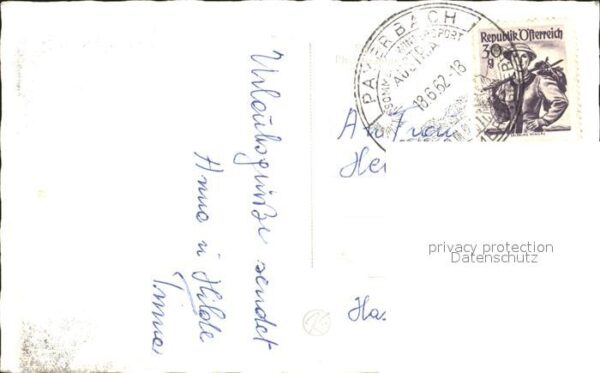 Urlaubsgrüße sendet
Anna u Hilde
PAYERBACH
WINTERSPORT
AUSTRIA
18.6.62-18
Republik Österreich
30 g
An Frau
privacy protection
Datenschutz